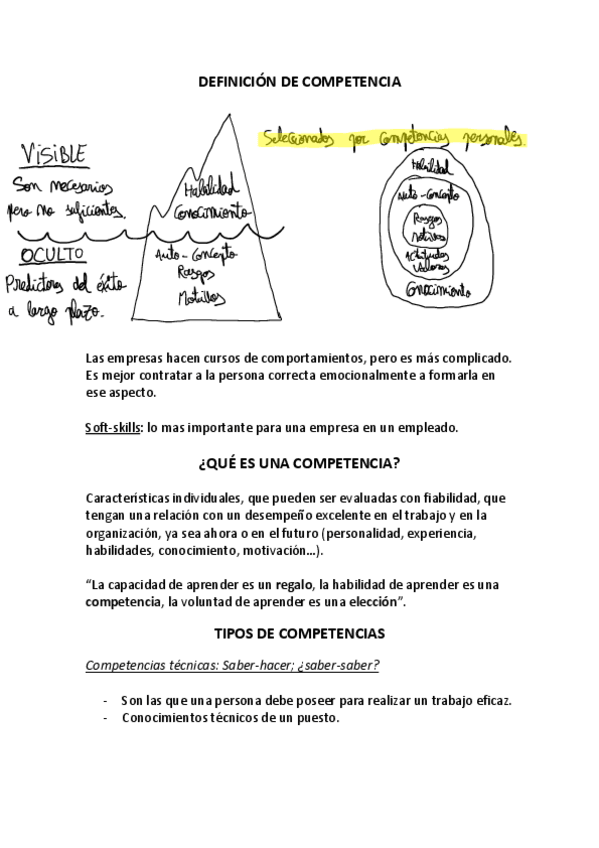 DEFINICIÓN DE COMPETENCIA
Seleccionados por competencias personales.
VISIBLE
Son necesarios
pero no suficientes.
Habilidad
Conocimiento
OCULTO
Predictores del éxito
a largo plazo.
Auto-concepto
Rasgos
Motivos
Habilidad
Auto-concepto
Rasgos
Motivos
Actitudes
Valores
Conocimiento
Las empresas hacen cursos de comportamientos, pero es más complicado.
Es mejor contratar a la persona correcta emocionalmente a formarla en
ese aspecto.
Soft-skills: lo mas importante para una empresa en un empleado.
¿QUÉ ES UNA COMPETENCIA?
Características individuales, que pueden ser evaluadas con fiabilidad, que
tengan una relación con un desempeño excelente en el trabajo y en la
organización, ya sea ahora o en el futuro (personalidad, experiencia,
habilidades, conocimiento, motivación…).
“La capacidad de aprender es un regalo, la habilidad de aprender es una
competencia, la voluntad de aprender es una elección”.
TIPOS DE COMPETENCIAS
Competencias técnicas: Saber-hacer; ¿saber-saber?
- Son las que una persona debe poseer para realizar un trabajo eficaz.
- Conocimientos técnicos de un puesto.